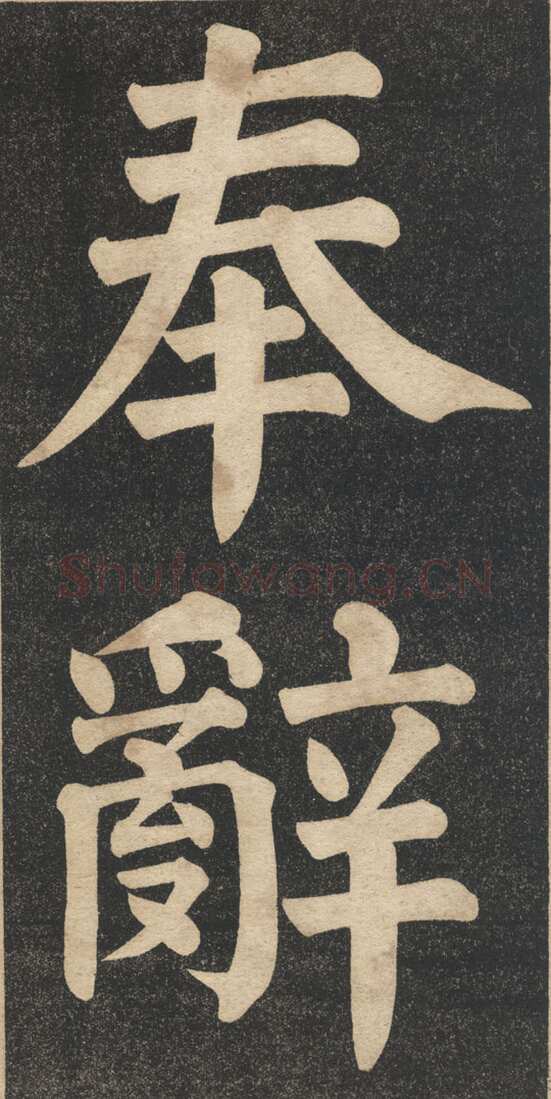 奉
辭
Shufawang.CN